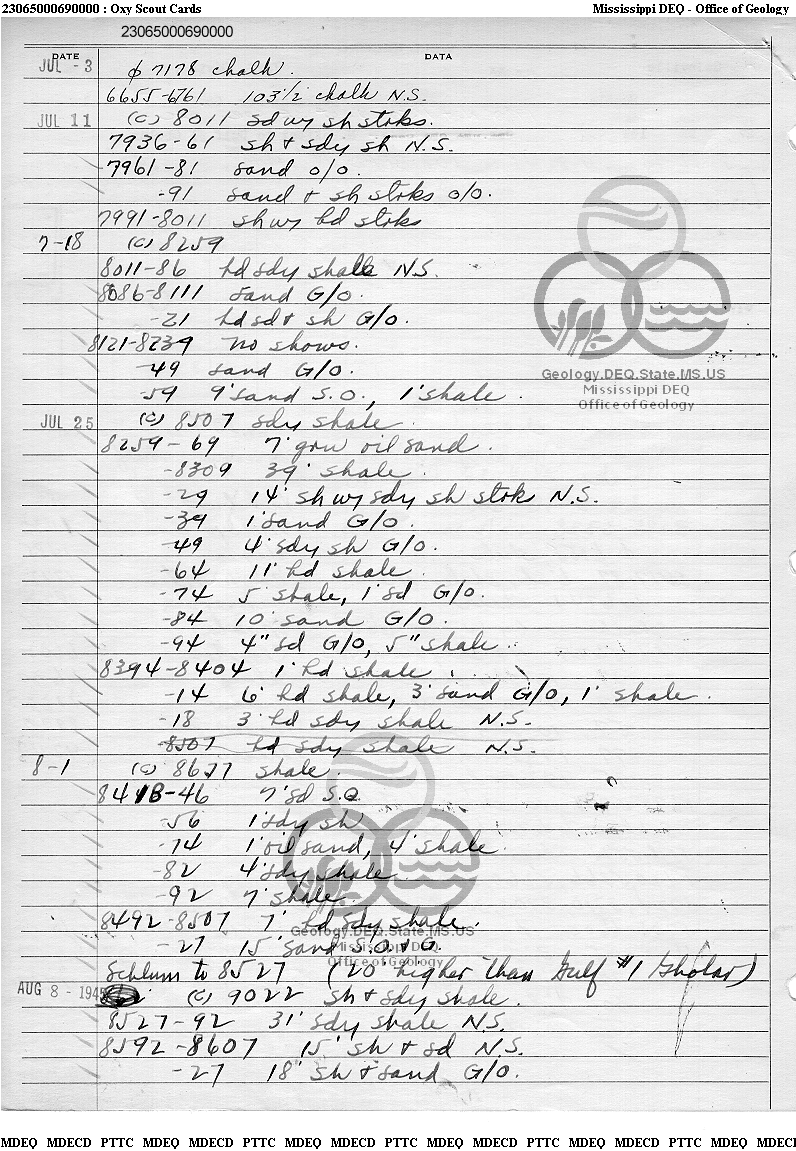 23065000690000 : Oxy Scout Cards Mississippi DEQ - Office of Geology
23065000690000
DATE DATA
JUL - 3 φ 7178 chalk.
6655-6761 103½ chalk N.S.
JUL 11 (c) 8011 sd wy sh strks.
7936-61 sh & sdy sh N.S.
7961-81 sand o/o.
-91 sand & sh strks o/o.
7991-8011 sh wy hd strks
7-18 (c) 8259
8011-86 hd sdy shale N.S.
8086-8111 sand G/O.
-21 hd sd & sh G/O.
8121-8239 no shows.
-49 sand G/O.
-59 9' sand S.O., 1' shale.
Geology.DEQ.State.MS.US
Mississippi DEQ
Office of Geology
JUL 25 (c) 8507 sdy shale.
8259-69 7' grn oil sand.
-8309 39' shale.
-29 14' sh wy sdy sh strk N.S.
-39 1' sand G/O.
-49 4' sdy sh G/O.
-64 11' hd shale.
-74 5' shale, 1' sd G/O.
-84 10' sand G/O.
-94 4" sd G/O, 5" shale.
8394-8404 1' hd shale.
-14 6' hd shale, 3' sand G/O, 1' shale.
-18 3' hd sdy shale N.S.
-8507 hd sdy shale N.S.
8-1 (c) 8627 shale.
8418-46 7' sd S.O.
-56 1' sdy sh
-74 1' oil sand, 4' shale.
-82 4' sdy shale.
-92 7' shale.
8492-8507 7' hd sdy shale.
Geology.DEQ.State.MS.US
-27 15' sand S.O. & G.
Mississippi DEQ
Office of Geology
Schlum to 8527 (20' higher than Gulf #1 Gholar)
AUG 8 - 1945 (c) 9022 sh & sdy shale.
8527-92 31' sdy shale N.S.
8592-8607 15' sh & sd N.S.
-27 18' sh & sand G/O.
MDEQ MDECD PTTC MDEQ MDECD PTTC MDEQ MDECD PTTC MDEQ MDECD PTTC MDEQ MDECD PTTC MDEQ MDECD PTTC MDEQ MDECD